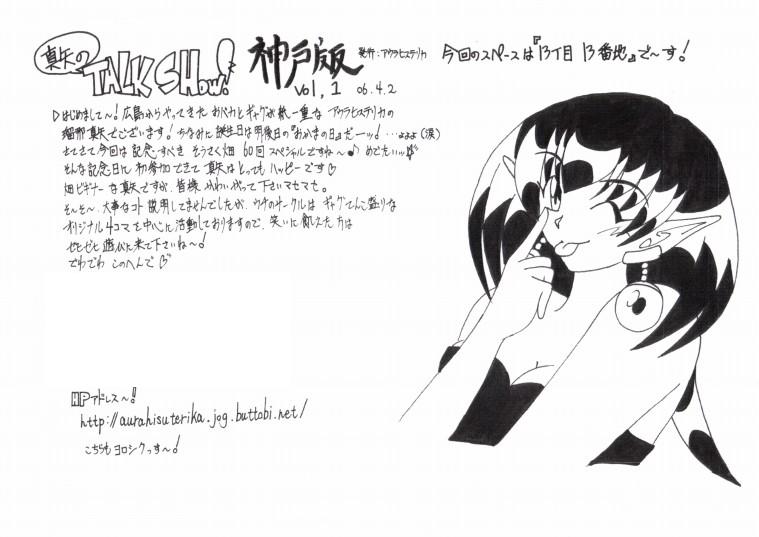 真矢の TALK SHOW! 神戸版 発行:アウラヒステリカ
vol,1 06.4.2
今回のスペースは『13丁目 13番地』で〜す!
▷はじめまして〜!広島からやってきた おバカとギャグが紙一重な アウラヒステリカの
真矢でございます!ちなみに誕生日は明後日の『おかまの日』だーッ! …よよよ(涙)
さてさて今回は記念すべき そうさく畑 60回スペシャルですね〜♪ めでたいッ!
そんな記念日に初参加できて真矢はとってもハッピーです♡
畑ビギナーな真矢ですが、皆様 かわいがって下さいマセマセ。
そ〜そ〜、大事なコト説明してませんでしたが、ウチのサークルは ギャグてんこ盛りな
オリジナル4コマを中心に活動しておりますので、笑いに飢えた方は
ゼヒゼヒ遊びに来て下さいね〜!
でわでわ このへんで♡
HPアドレス〜!
http://aurahisuterika.jog.buttobi.net/
こちらもヨロシクっす〜!